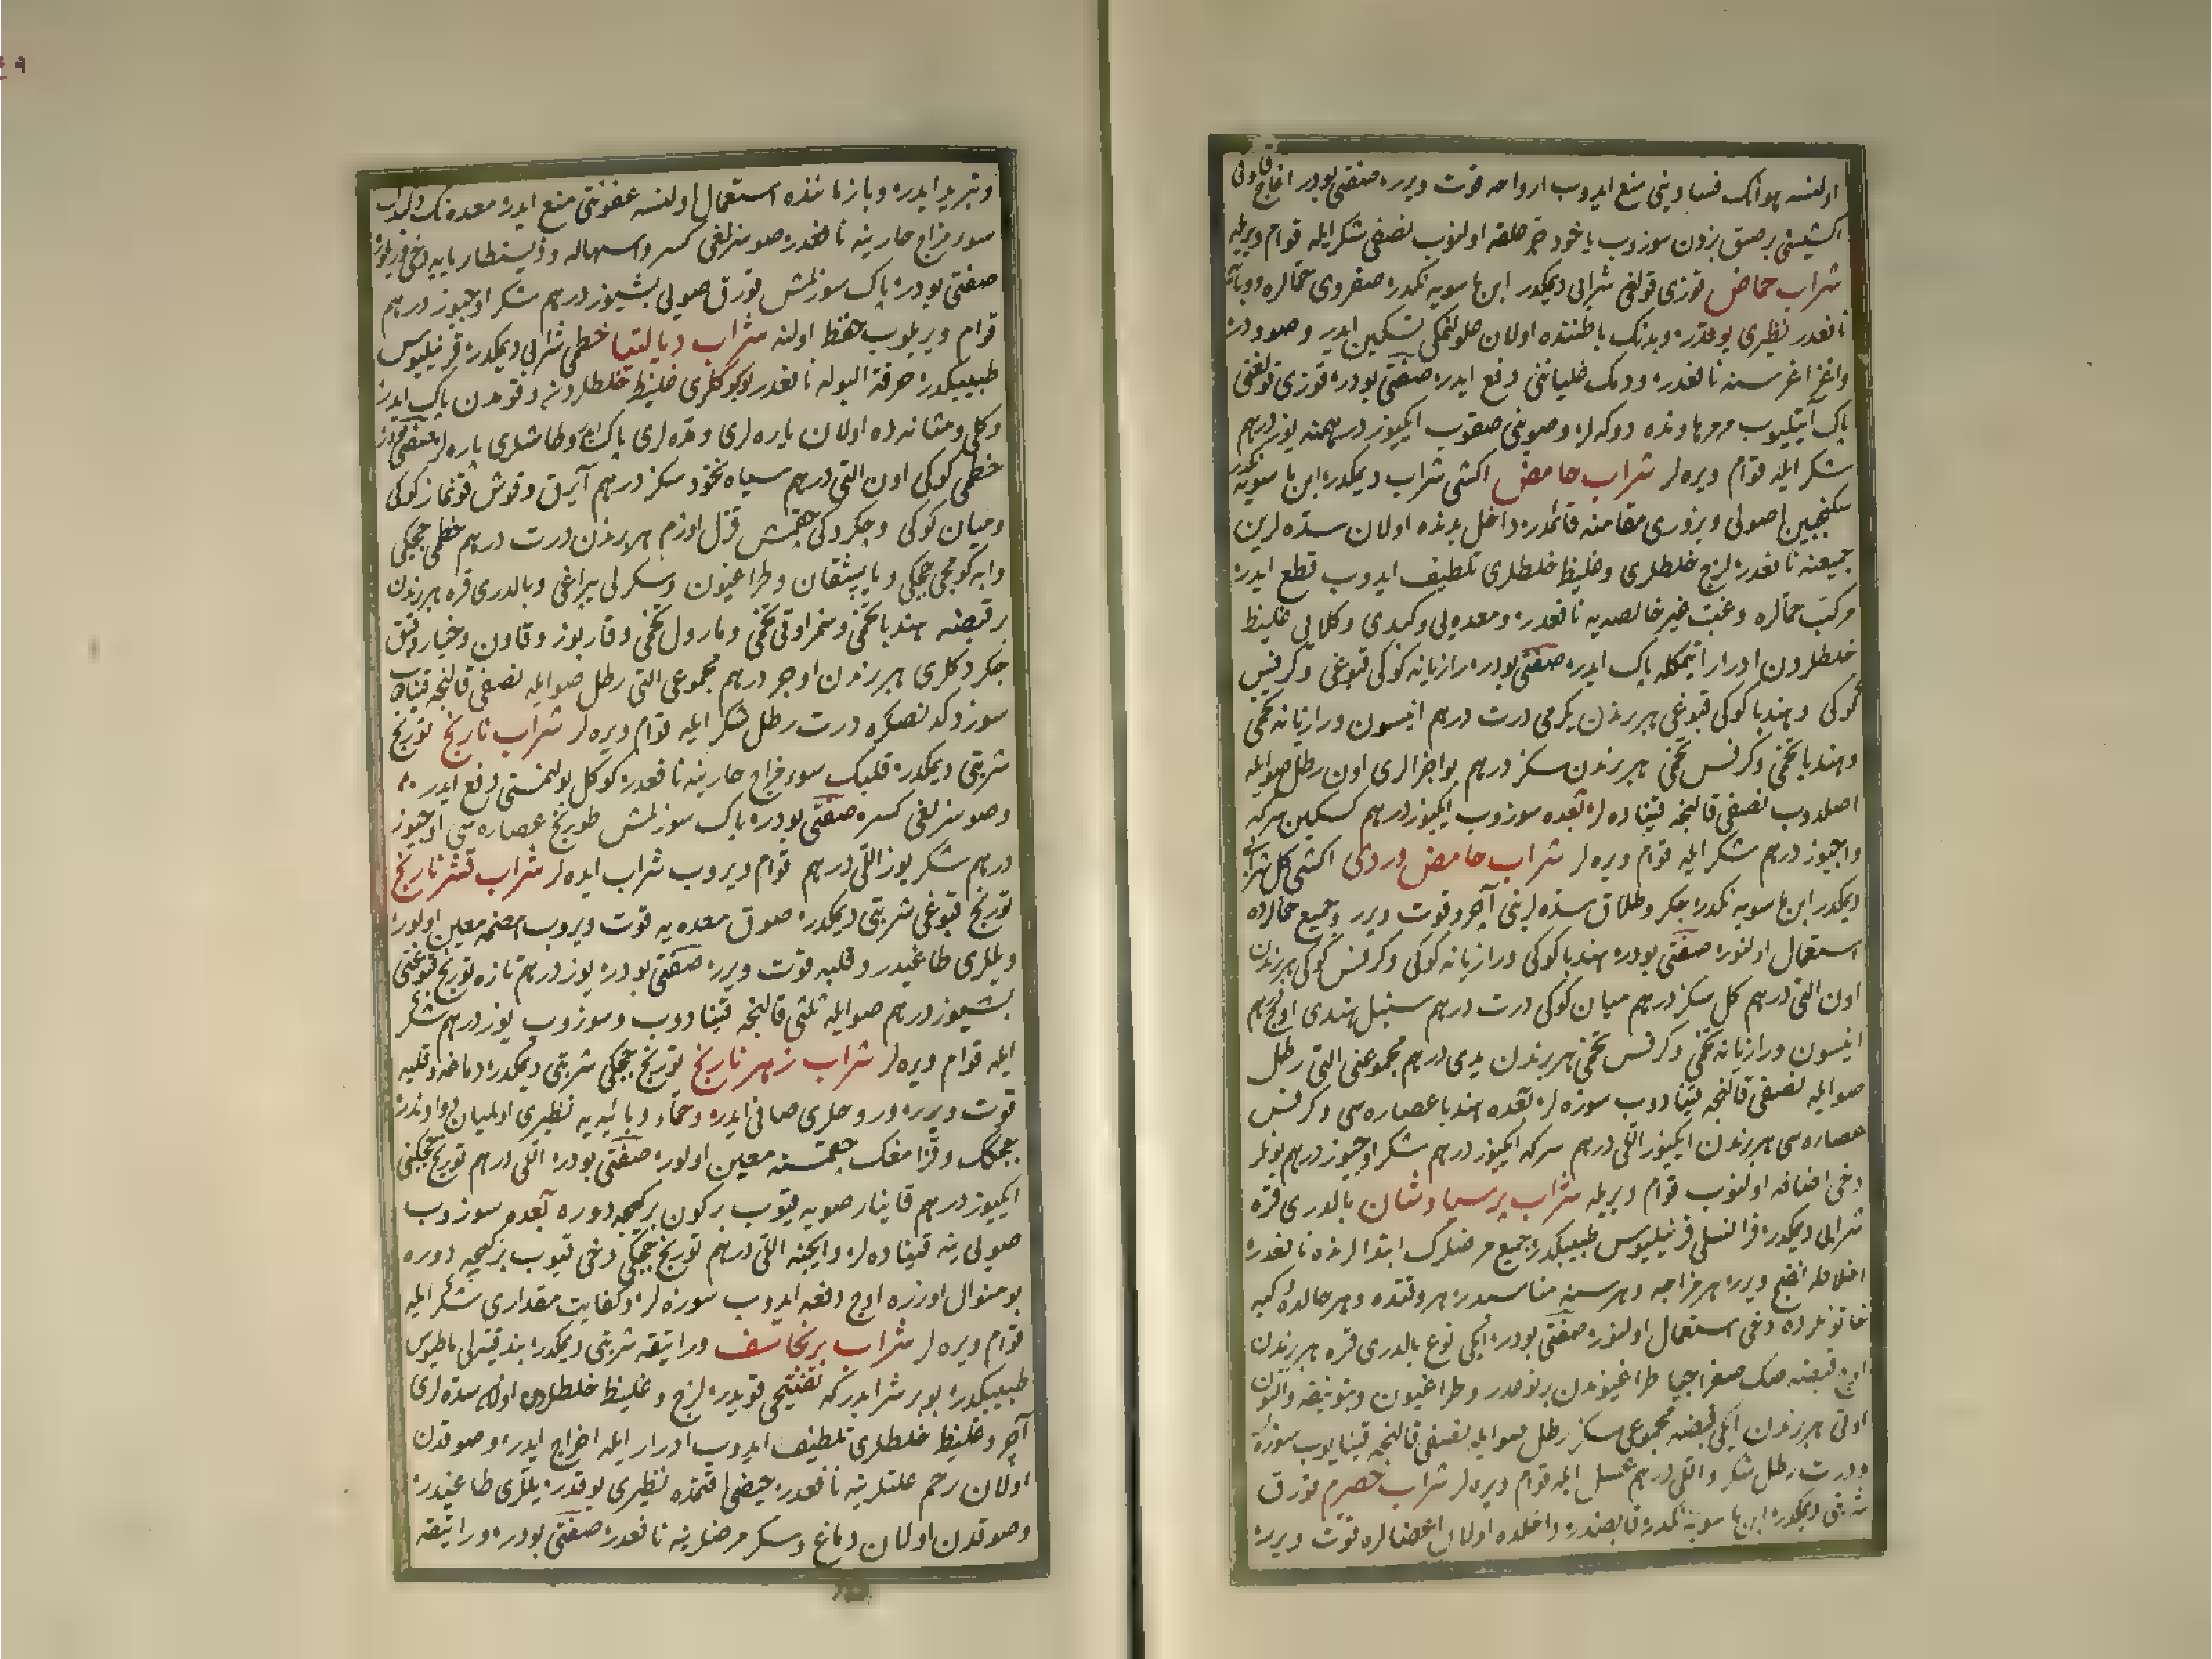 اولنسه هوانك فسادینی منع ایدوب ارواحه قوت ویرر صنعتی بودر اغاج قاونی
اكشیسنی برصق بزدن سوزوب یاخود خرطه اولنوب نصفی شكر ایله قوام ویریله
شراب حماض قوزی قولغی شرابی دیمكدر ابن ماسویه نكدر صفروی حمالره ووبایه
نافعدر نظیری یوقدر وبدنك باطننده اولان صولتمكی تسكین ایدر وصوودر
واغز اغرسنه نافعدر ودمك غلیاننی دفع ایدر صنعتی بودر قوزی قولغنی
پاك آیتلیوب مرمر هاونده دوكه لر وصوینی صقوب ایكیوز درهمنه یوز درهم
شكر ایله قوام ویره لر شراب حامض اكشی شراب دیمكدر ابن ماسویه نكدر
سكنجبین اصولی وبزوری مقامنه قائمدر داخل بدنده اولان سده لرین
جمیعنه نافعدر لزج خلطلری وغلیظ خلطلری تلطیف ایدوب قطع ایدر
مركب حمالره وغب غیر خالصه یه نافعدر ومعده یی وكبدی وكلایی غلیظ
خلطلردن ادرار ایتمكله پاك ایدر صنعتی بودر رازیانه كوكی قبوغی وكرفس
كوكی وهندبا كوكی قبوغی هربرندن یكرمی درت درهم انیسون ورازیانه تخمی
وهندبا تخمی وكرفس تخمی هربرندن سكز درهم بو اجزالری اون رطل صو ایله
اصلدوب نصفی قالنجه قیناده لر بعده سوزوب ایكیوز درهم كسكین سركه
واوچیوز درهم شكر ایله قوام ویره لر شراب حامض وردی اكشی كل شرابی
دیمكدر ابن ماسویه نكدر جكر وطلاق سده لرینی آچر وقوت ویرر وجمیع حمالرده
استعمال اولنور صنعتی بودر هندبا كوكی ورازیانه كوكی وكرفس كوكی هربرندن
اون التی درهم كل سكز درهم میان كوكی درت درهم سنبل هندی اوچ درهم
انیسون ورازیانه تخمی وكرفس تخمی هربرندن یدی درهم مجموعنی التی رطل
صو ایله نصفی قالنجه قینادوب سوزه لر بعده هندبا عصاره سی وكرفس
عصاره سی هربرندن ایكیوز اللی درهم سركه ایكیوز درهم شكر اوچیوز درهم بونلر
دخی اضافه اولنوب قوام ویریله شراب پرسیاوشان بالدری قره
شرابی دیمكدر فرانسلی فرنیلیوس طبیبكدر جمیع مرضلرك ابتدالرنده نافعدر
اخلاطه نضج ویرر هر مزاجه وهر سنه مناسبدر هر وقتده وهر حالده كبه
خاتونلرده دخی استعمال اولنور صنعتی بودر ایكی نوع بالدری قره هربرندن
اوچ قبضه
اوتی هربرندن ایكی قبضه مجموعی سكز رطل صو ایله نصفی قالنجه قینایوب سوزه لر
ودرت رطل شكر واللی درهم عسل ایله قوام ویره لر شراب حصرم قورق
شربتی دیمكدر ابن ماسویه نكدر قابضدر داخلده اولان اعضالره قوت ویرر
وتبرید ایدر وباز ماننده استعمال اولنسه عفونتی منع ایدر معده نك
سوء مزاج حارینه نافعدر صوسزلغی كسر واسهاله وذیسنطاریایه دخی ویریلور
صنعتی بودر پاك سوزلمش قورق صویی بشیوز درهم شكر اوچیوز درهم
قوام ویریلوب حفظ اولنه شراب دیالتیا خطمی شرابی دیمكدر فرنیلیوس
طبیبكدر حرقة البوله نافعدر بوكركلری غلیظ خلطلردن وقومدن پاك ایدر
وكلی ومثانه ده اولان یاره لری ومده لری پاك ایدر وطاشلری پاره لر صنعتی بودر
خطمی كوكی اون التی درهم سیاه نخود سكز درهم آیرق وقوش قونماز كوكی
ومیان كوكی وچكردكی چقمش قزل اوزم هربرندن درت درهم خطمی چچكی
وابه كومجی چچكی وپاپشقان وطراغیون وسكرلی یپراغی وبالدری قره هربرندن
بر قبضه هندبا تخمی وسمزاوتی تخمی ومارول تخمی وقاربوز وقاون وخیار وقبق
چكردكلری هربرندن اوچر درهم مجموعی التی رطل صو ایله نصفی قالنجه قینادب
سوزدكدنصكره درت رطل شكر ایله قوام ویره لر شراب نارنج تورنج
شربتی دیمكدر قلبك سوء مزاج حارینه نافعدر كوكل بولنمسنی دفع ایدر
وصوسزلغی كسر صنعتی بودر پاك سوزلمش طورنج عصاره سی اوچیوز
درهم شكر یوز اللی درهم قوام ویروب شراب ایده لر شراب قشر نارنج
تورنج قبوغی شربتی دیمكدر صوق معده یه قوت ویروب هضمه معین اولور
ویللری طاغیدر وقلبه قوت ویرر صنعتی بودر یوز درهم تازه تورنج قبوغنی
بشیوز درهم صو ایله ثلثی قالنجه قینادوب وسوزوب یوز درهم شكر
ایله قوام ویره لر شراب زهر نارنج تورنج چچكی شربتی دیمكدر دماغه وقلبه
قوت ویرر وروحلری صافی ایدر وحماء وبائیه یه نظیری اولمیان دوادندر
چچك وقزامغك چقمسنه معین اولور صنعتی بودر اللی درهم تورنج چچكنی
ایكیوز درهم قاینار صویه قیوب بر كون بر كیجه دوره بعده سوزوب
صویی ینه قیناده لر وایچنه اللی درهم تورنج چچكی دخی قیوب بر كیجه دوره
بو منوال اوزره اوچ دفعه ایدوب سوزه لر وكفایت مقداری شكر ایله
قوام ویره لر شراب برنجاسف ورانیقه شربتی دیمكدر
طبیبكدر بو بر شرابدر كه تفتیحی قویدر لزج وغلیظ خلطلردن اولان سده لری
آچر وغلیظ خلطلری تلطیف ایدوب ادرار ایله اخراج ایدر وصوقدن
اولان رحم علتلرینه نافعدر حیضی اچمقده نظیری یوقدر یللری طاغیدر
وصوقدن اولان دماغ وسكر مرضلرینه نافعدر صنعتی بودر ورانیقه